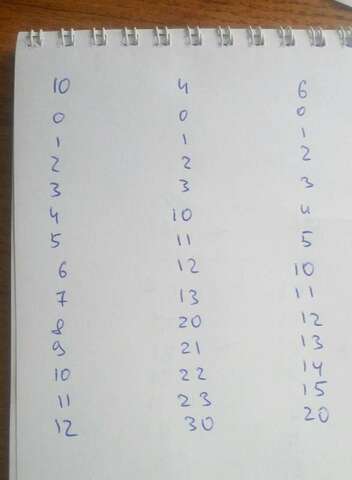 10 4 6
0 0 0
1 1 1
2 2 2
3 3 3
4 10 4
5 11 5
6 12 10
7 13 11
8 20 12
9 21 13
10 22 14
11 23 15
12 30 20